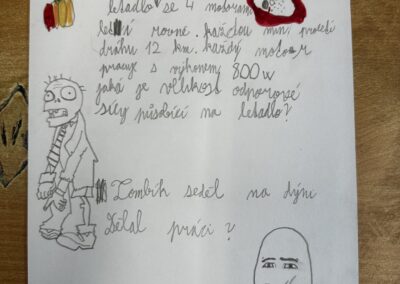 letadlo se 4 motorami
letí rovně. každou min. proletí
dráhu 12 km. každý motor
pracuje s výkonem 800 w
jaká je velikost odporové
síly působící na letadlo?
Zombík sedel na dýni
Dělal práci?